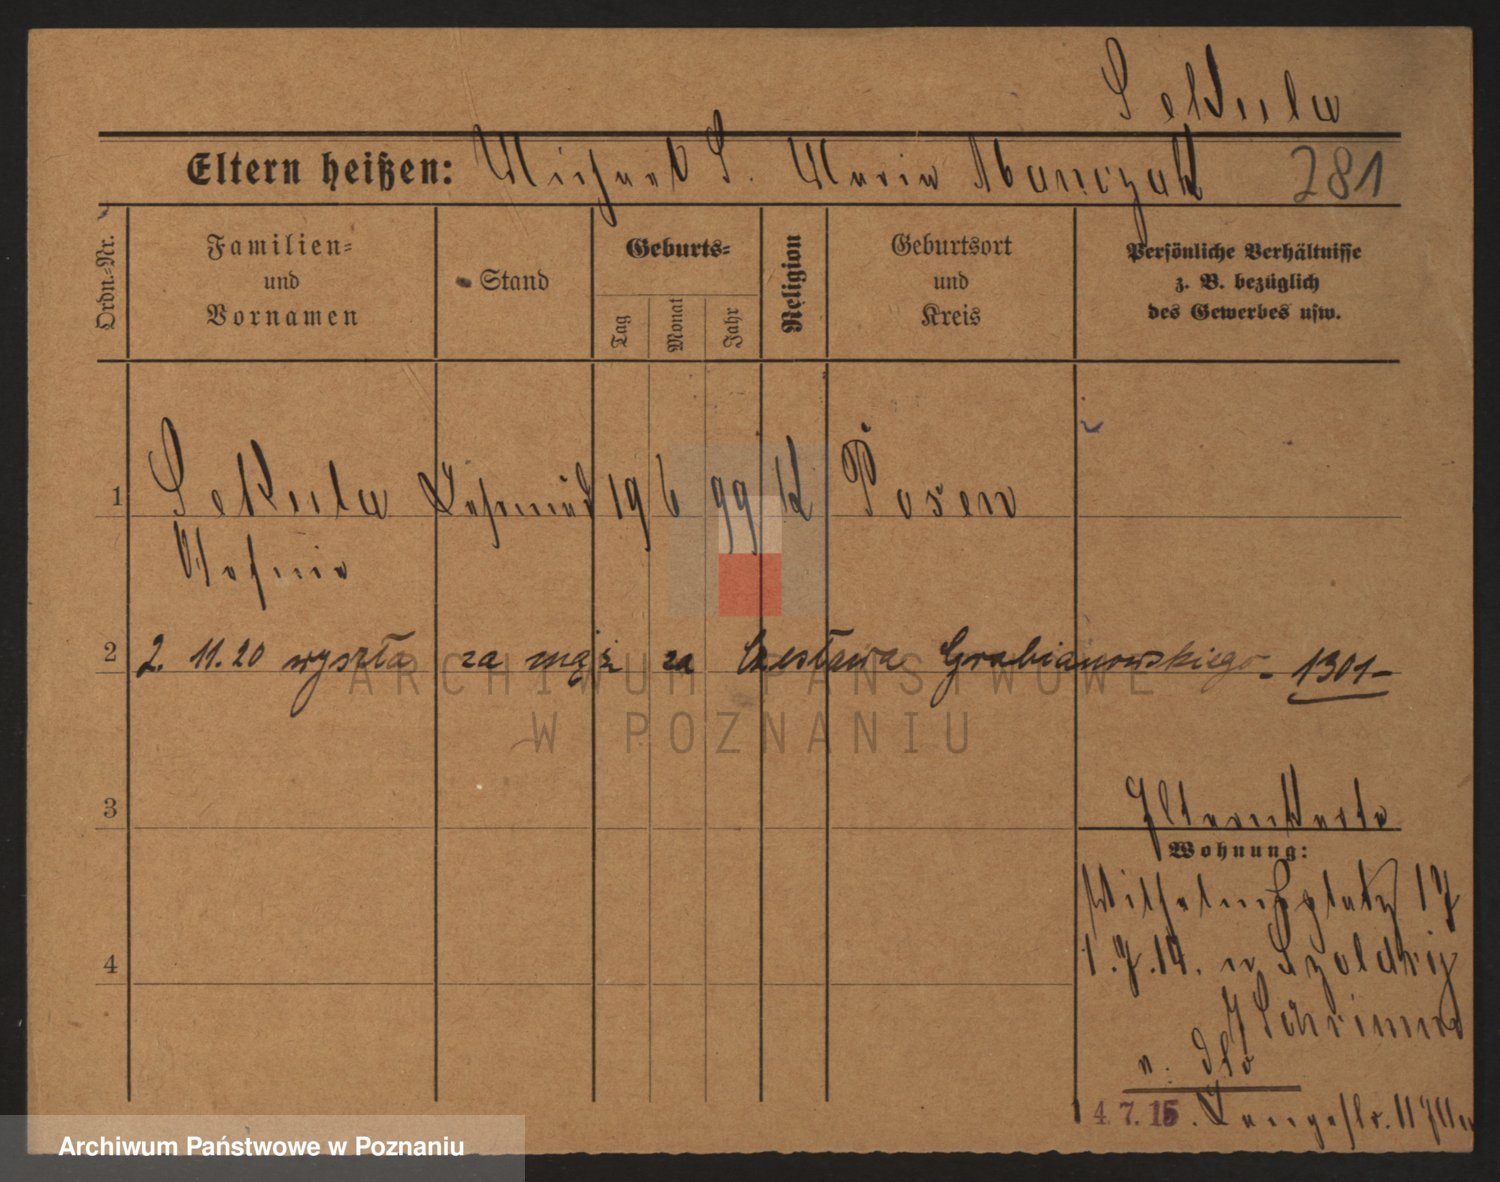 Sekula
Eltern heißen: Michael S. Maria Manczak 281
Ordn.-Nr. Familien- und Vornamen Stand Geburts- Tag Monat Jahr Religion Geburtsort und Kreis Persönliche Verhältnisse z. B. bezüglich des Gewerbes usw.
1 Sekula 19 6 99 K Posen
2 2. 11. 20 wyszła za mąż za Czesława Grabianowskiego - 1301-
ARCHIWUM PAŃSTWOWE
W POZNANIU
3
Elternkarte
Wohnung:
Wilhelmsplatz 17
4
1.7.14. n
Schrimm
n.
14.7.15. Langestr. 11
Archiwum Państwowe w Poznaniu